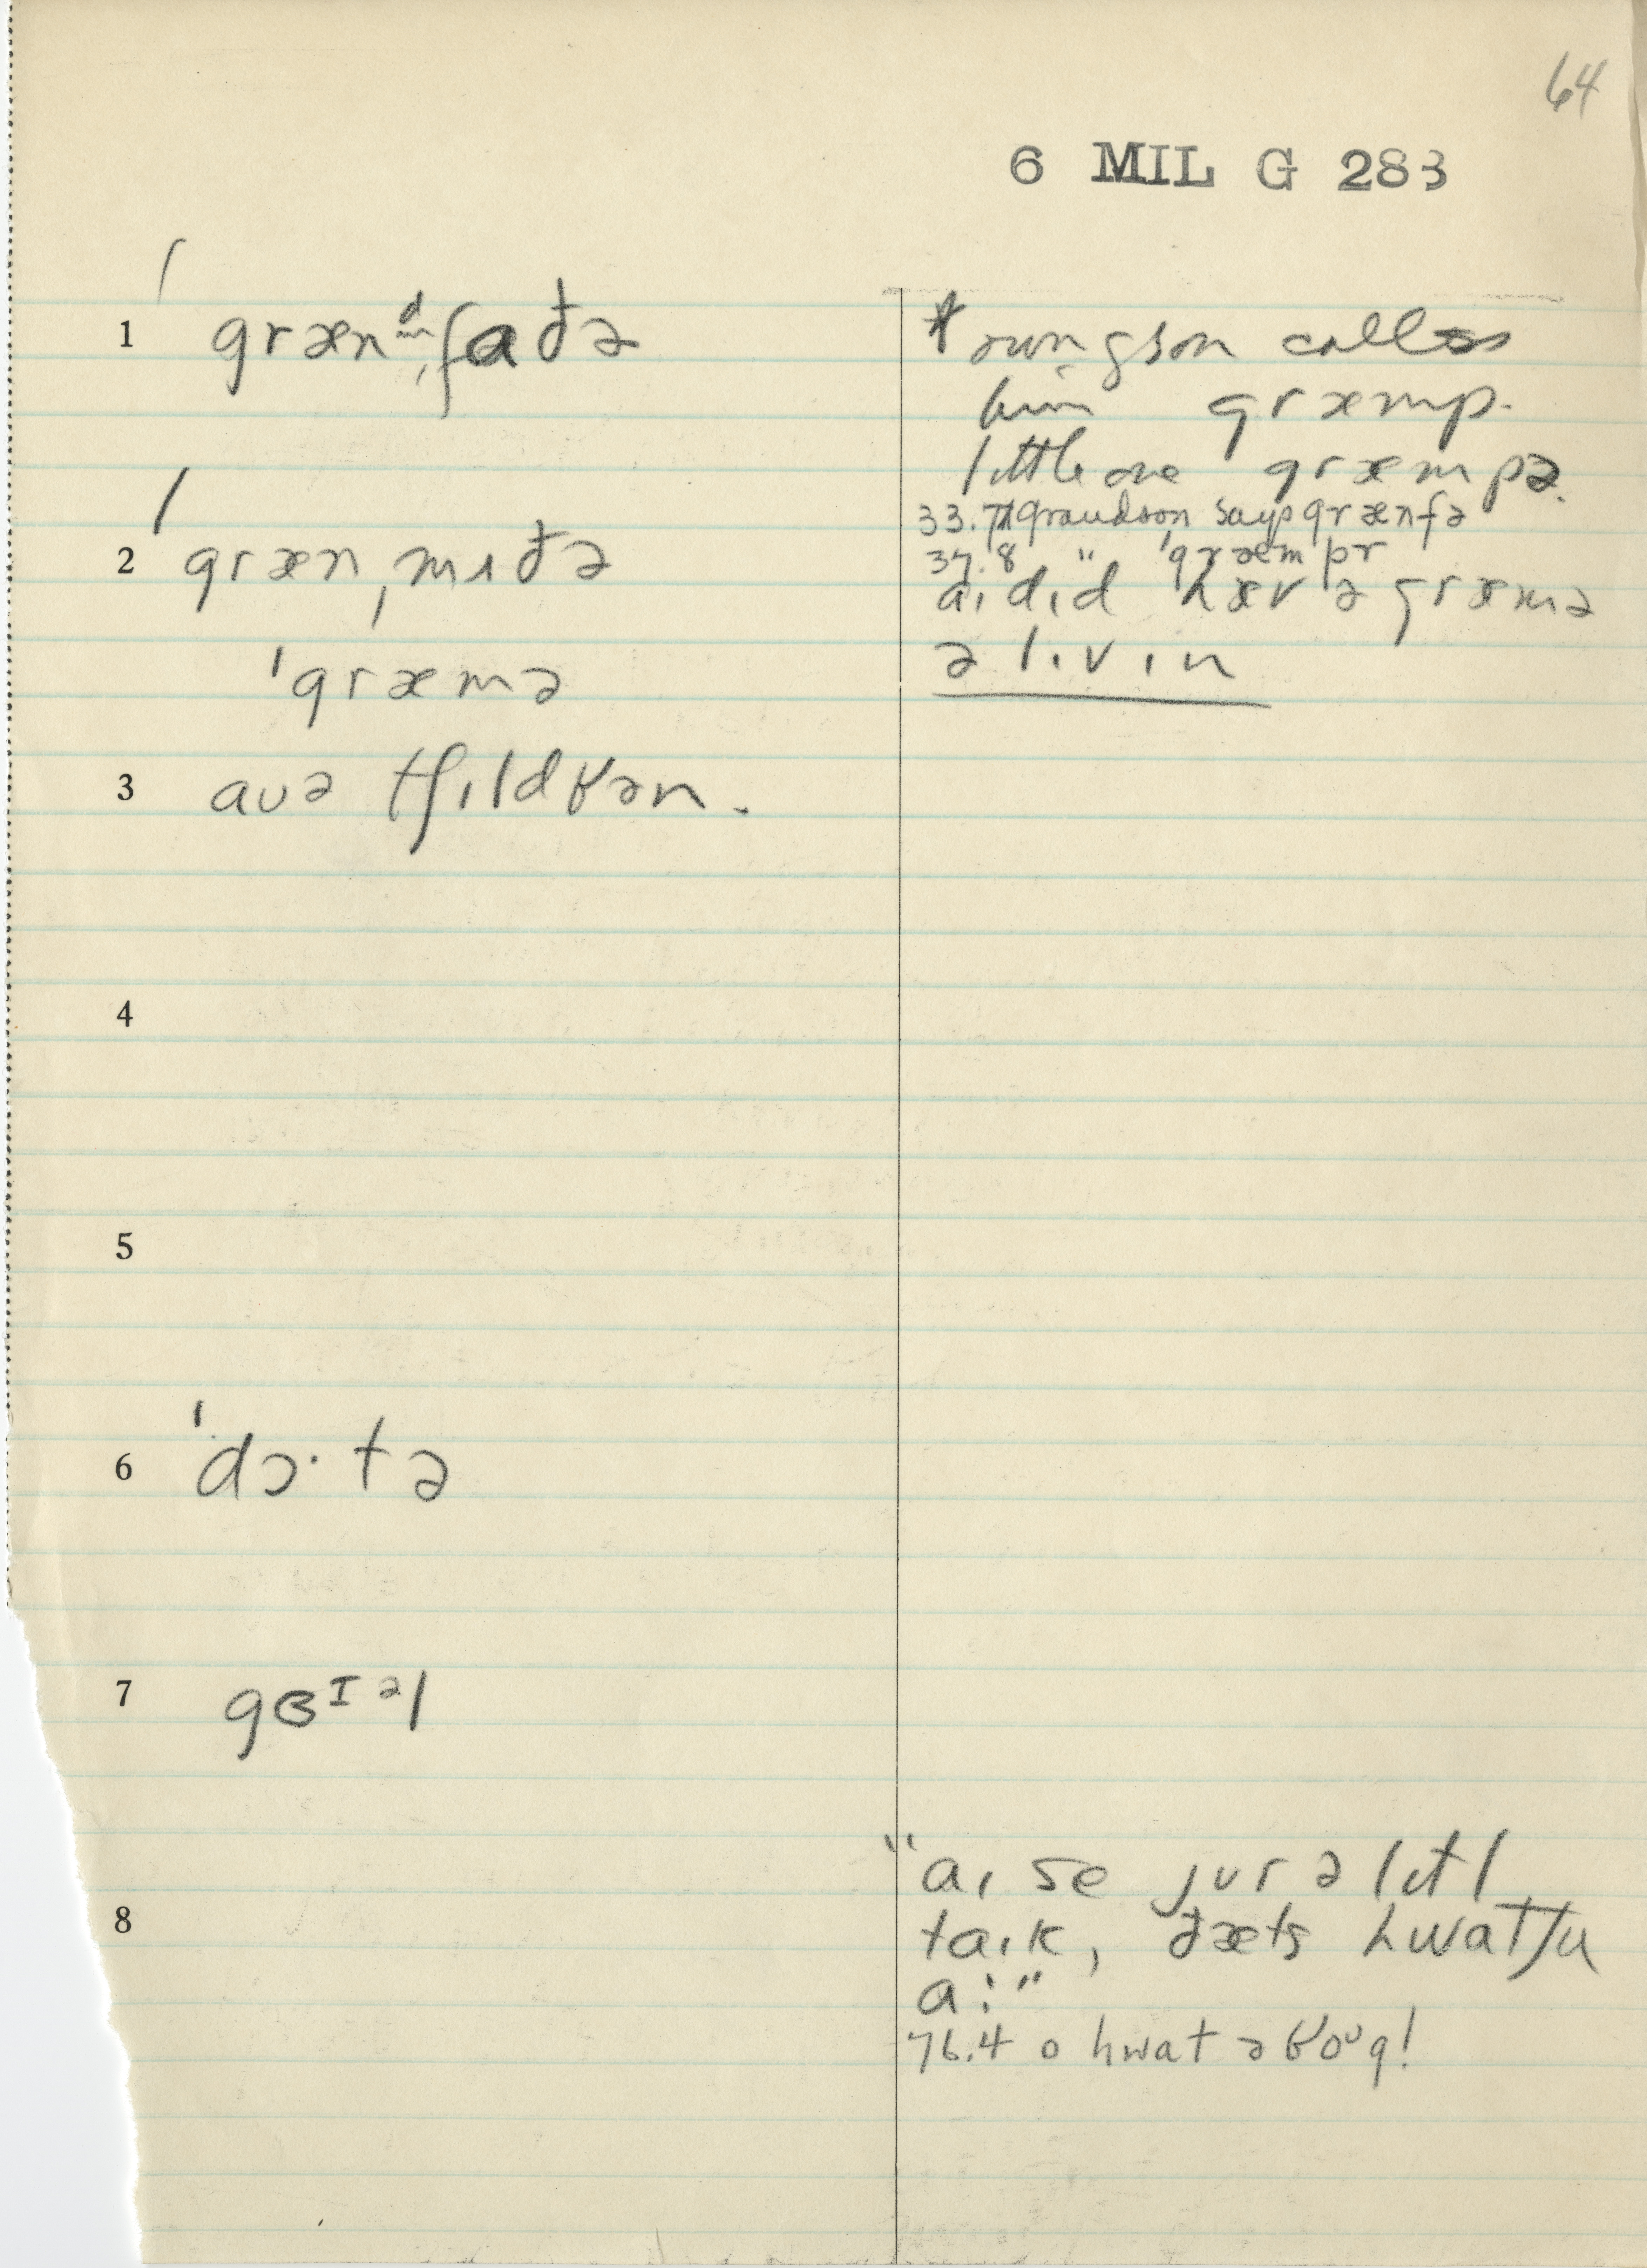 64
6 MIL G 283
1 ˈgrænᵈˌfaðə
own gson calls
him græmp.
little one græmpə.
33.7 grandson says grænfə
37.8 " ˈgræmpr
2 ˈgrænˌmɪðə
aɪ dɪd hæv ə græmə
ˈgræmə
ə lɪvɪn
3 aʊə tʃɪldrən.
4
5
6 ˈdɔ·tə
7 gɜᴵᵊl
8
"aɪ se jʊr ə lɪtl
taɪk, ðæts hwatʃu
a:"
76.4 o hwat ə roᶷg!